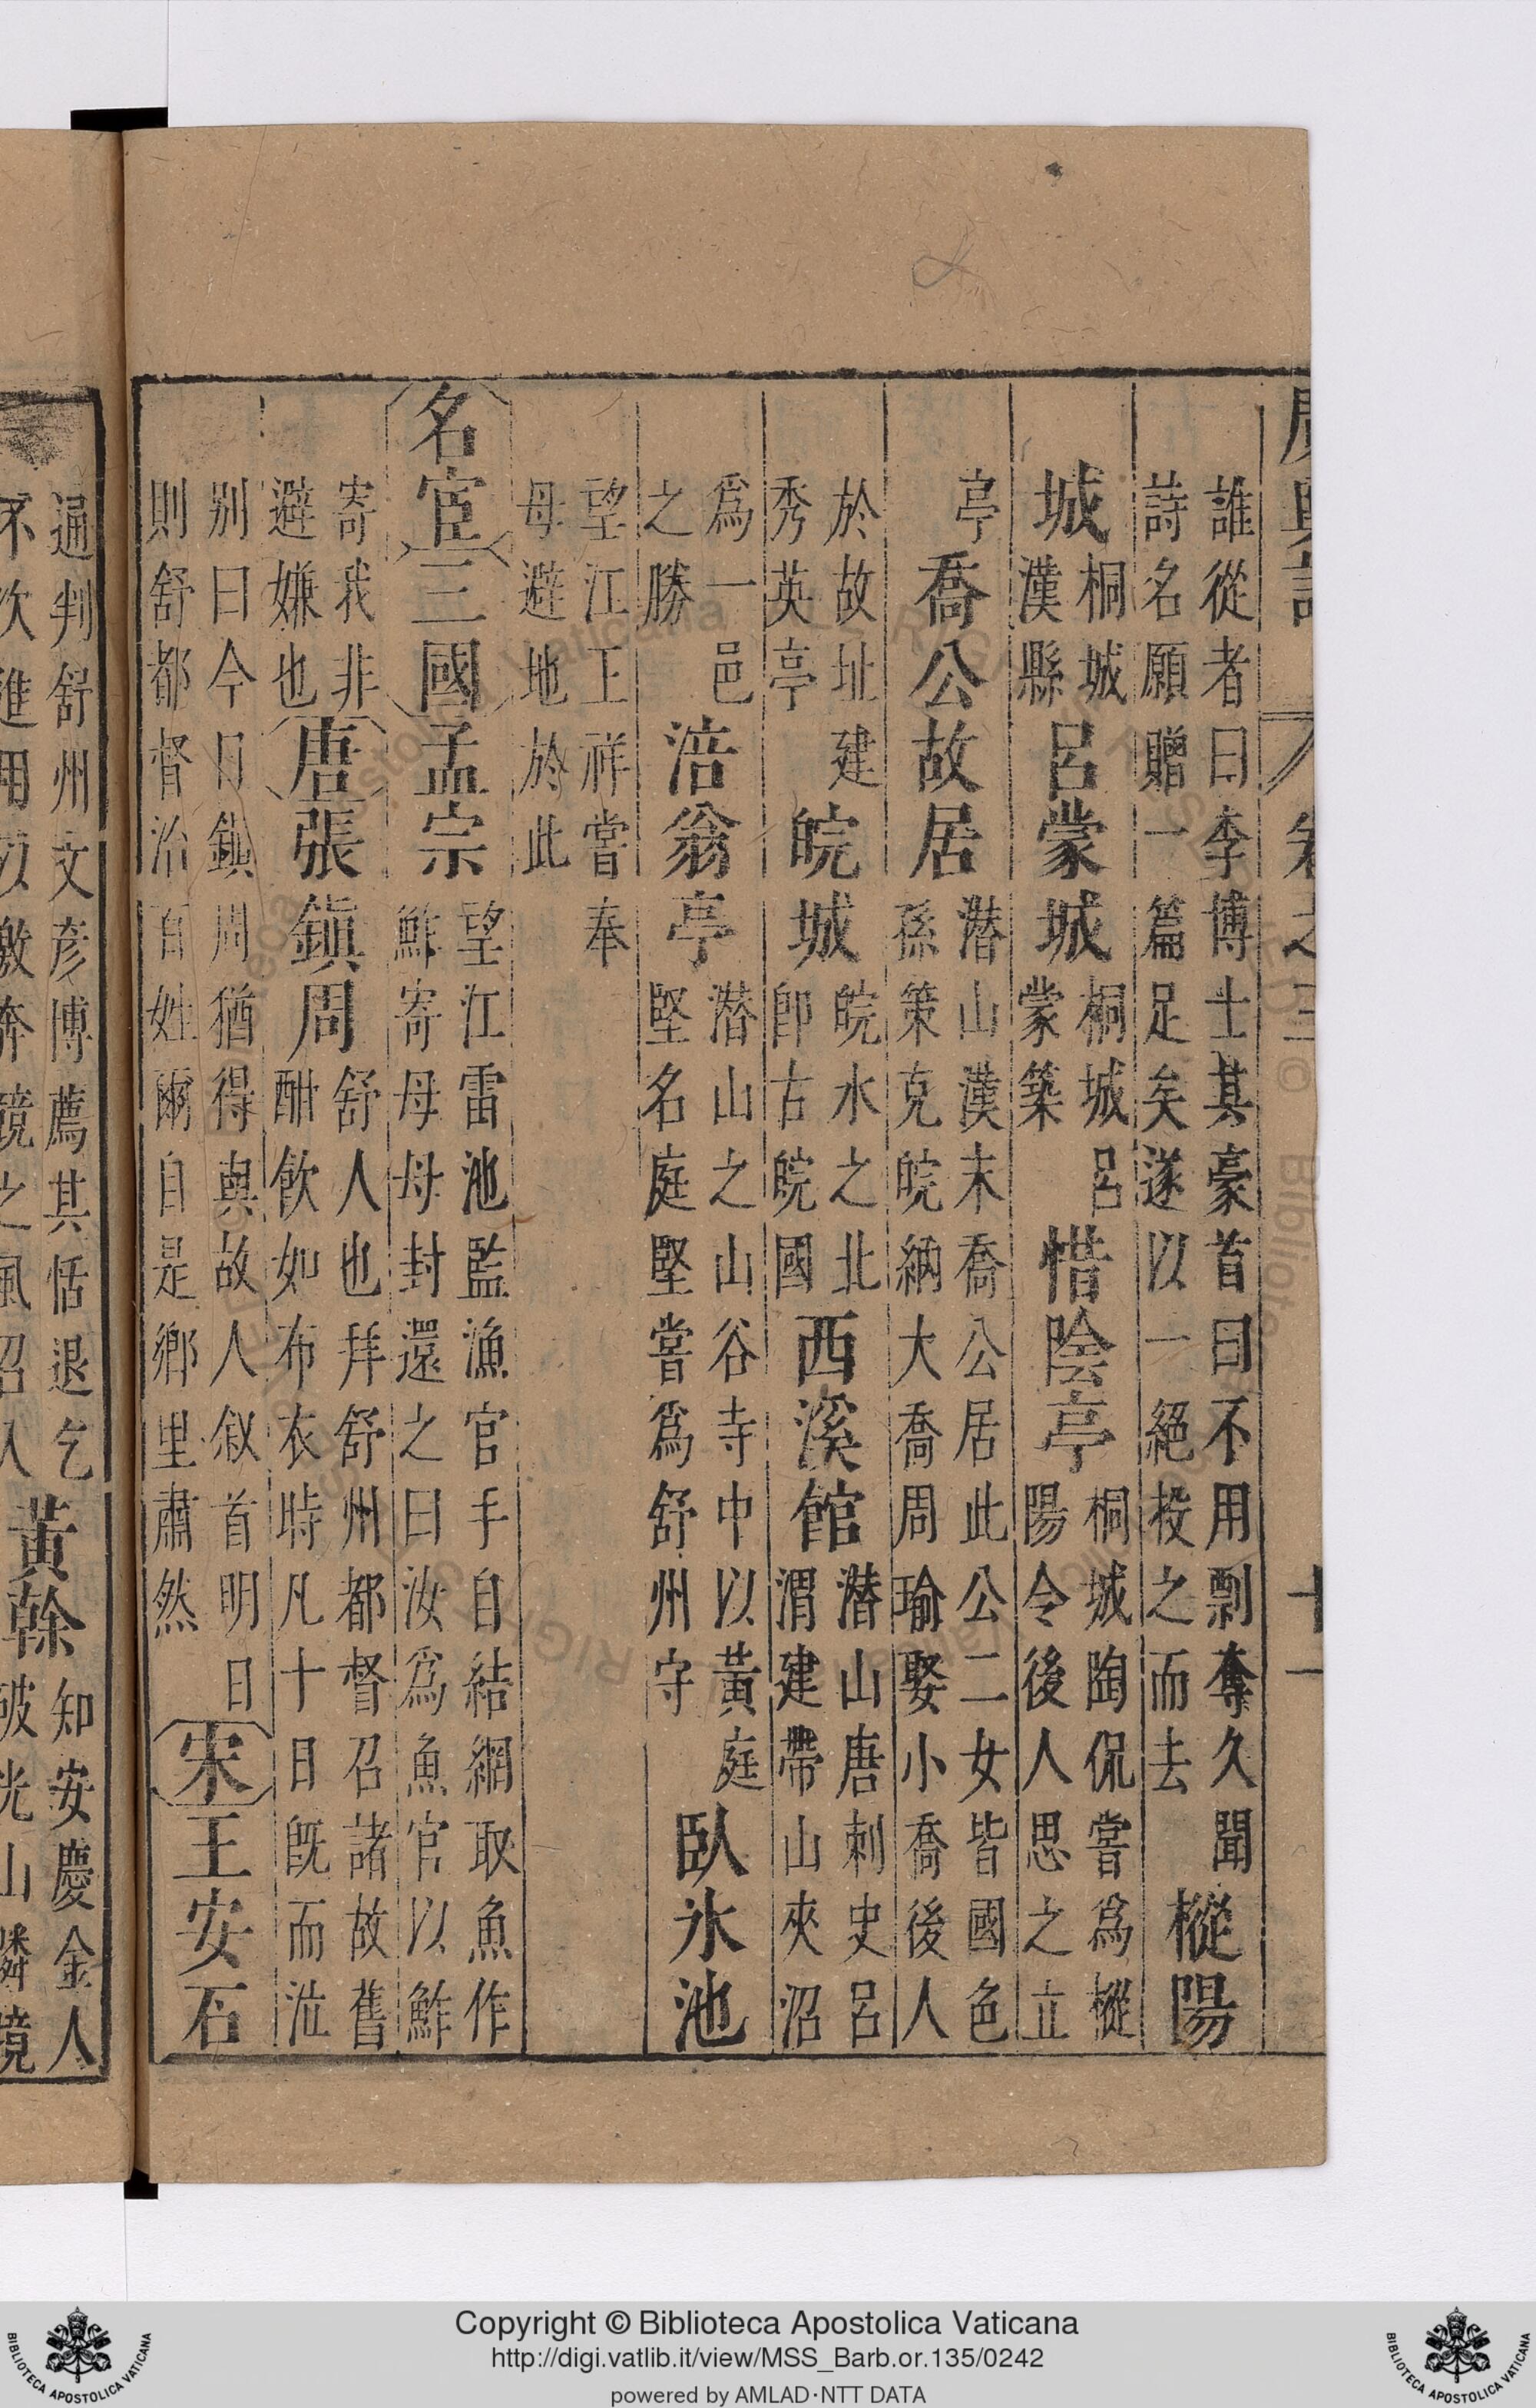 廣輿記 卷之三 十一
誰從者曰李博士其豪首曰不用剽奪久聞
詩名願贈一篇足矣遂以一絕投之而去 樅陽
城 桐城
漢縣 呂蒙城 桐城呂
蒙築 惜陰亭 桐城陶侃嘗爲樅
陽令後人思之立
亭 喬公故居 潜山漢末喬公居此公二女皆國色
孫策克皖納大喬周瑜娶小喬後人
於故址建
秀英亭 皖城 皖水之北
卽古皖國 西溪館 潜山唐刺史呂
渭建帶山夾沼
爲一邑
之勝 涪翁亭 潜山之山谷寺中以黃庭
堅名庭堅嘗爲舒州守 臥氷池
望江王祥嘗奉
母避地於此
名宦 三國 孟宗 望江雷池監漁官手自結網取魚作
鮓寄母母封還之曰汝爲魚官以鮓
寄我非
避嫌也 唐 張鎮周 舒人也拜舒州都督召諸故舊
酣飲如布衣時凡十日旣而泣
别曰今日鎮周猶得與故人叙首明日
則舒都督治百姓爾自是鄉里肅然 宋 王安石
通判舒州文彥博薦其恬退乞
不次進用以激奔競之風召入 黃榦 知安慶金人
破光山隣境
Copyright © Biblioteca Apostolica Vaticana
http://digi.vatlib.it/view/MSS_Barb.or.135/0242
powered by AMLAD·NTT DATA
BIBLIOTECA APOSTOLICA VATICANA
BIBLIOTECA APOSTOLICA VATICANA